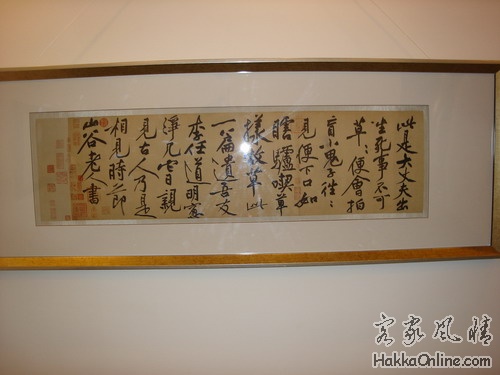 此是大丈夫出
生死事不可
草〻便會拍
盲小鬼子往〻
見便下口如
瞎驢喫草
樣故草此
一篇遺吾友
李任道明窗
淨几它日親
見古人乃是
相見時節
山谷老人書
客家風情
HakkaOnline.com